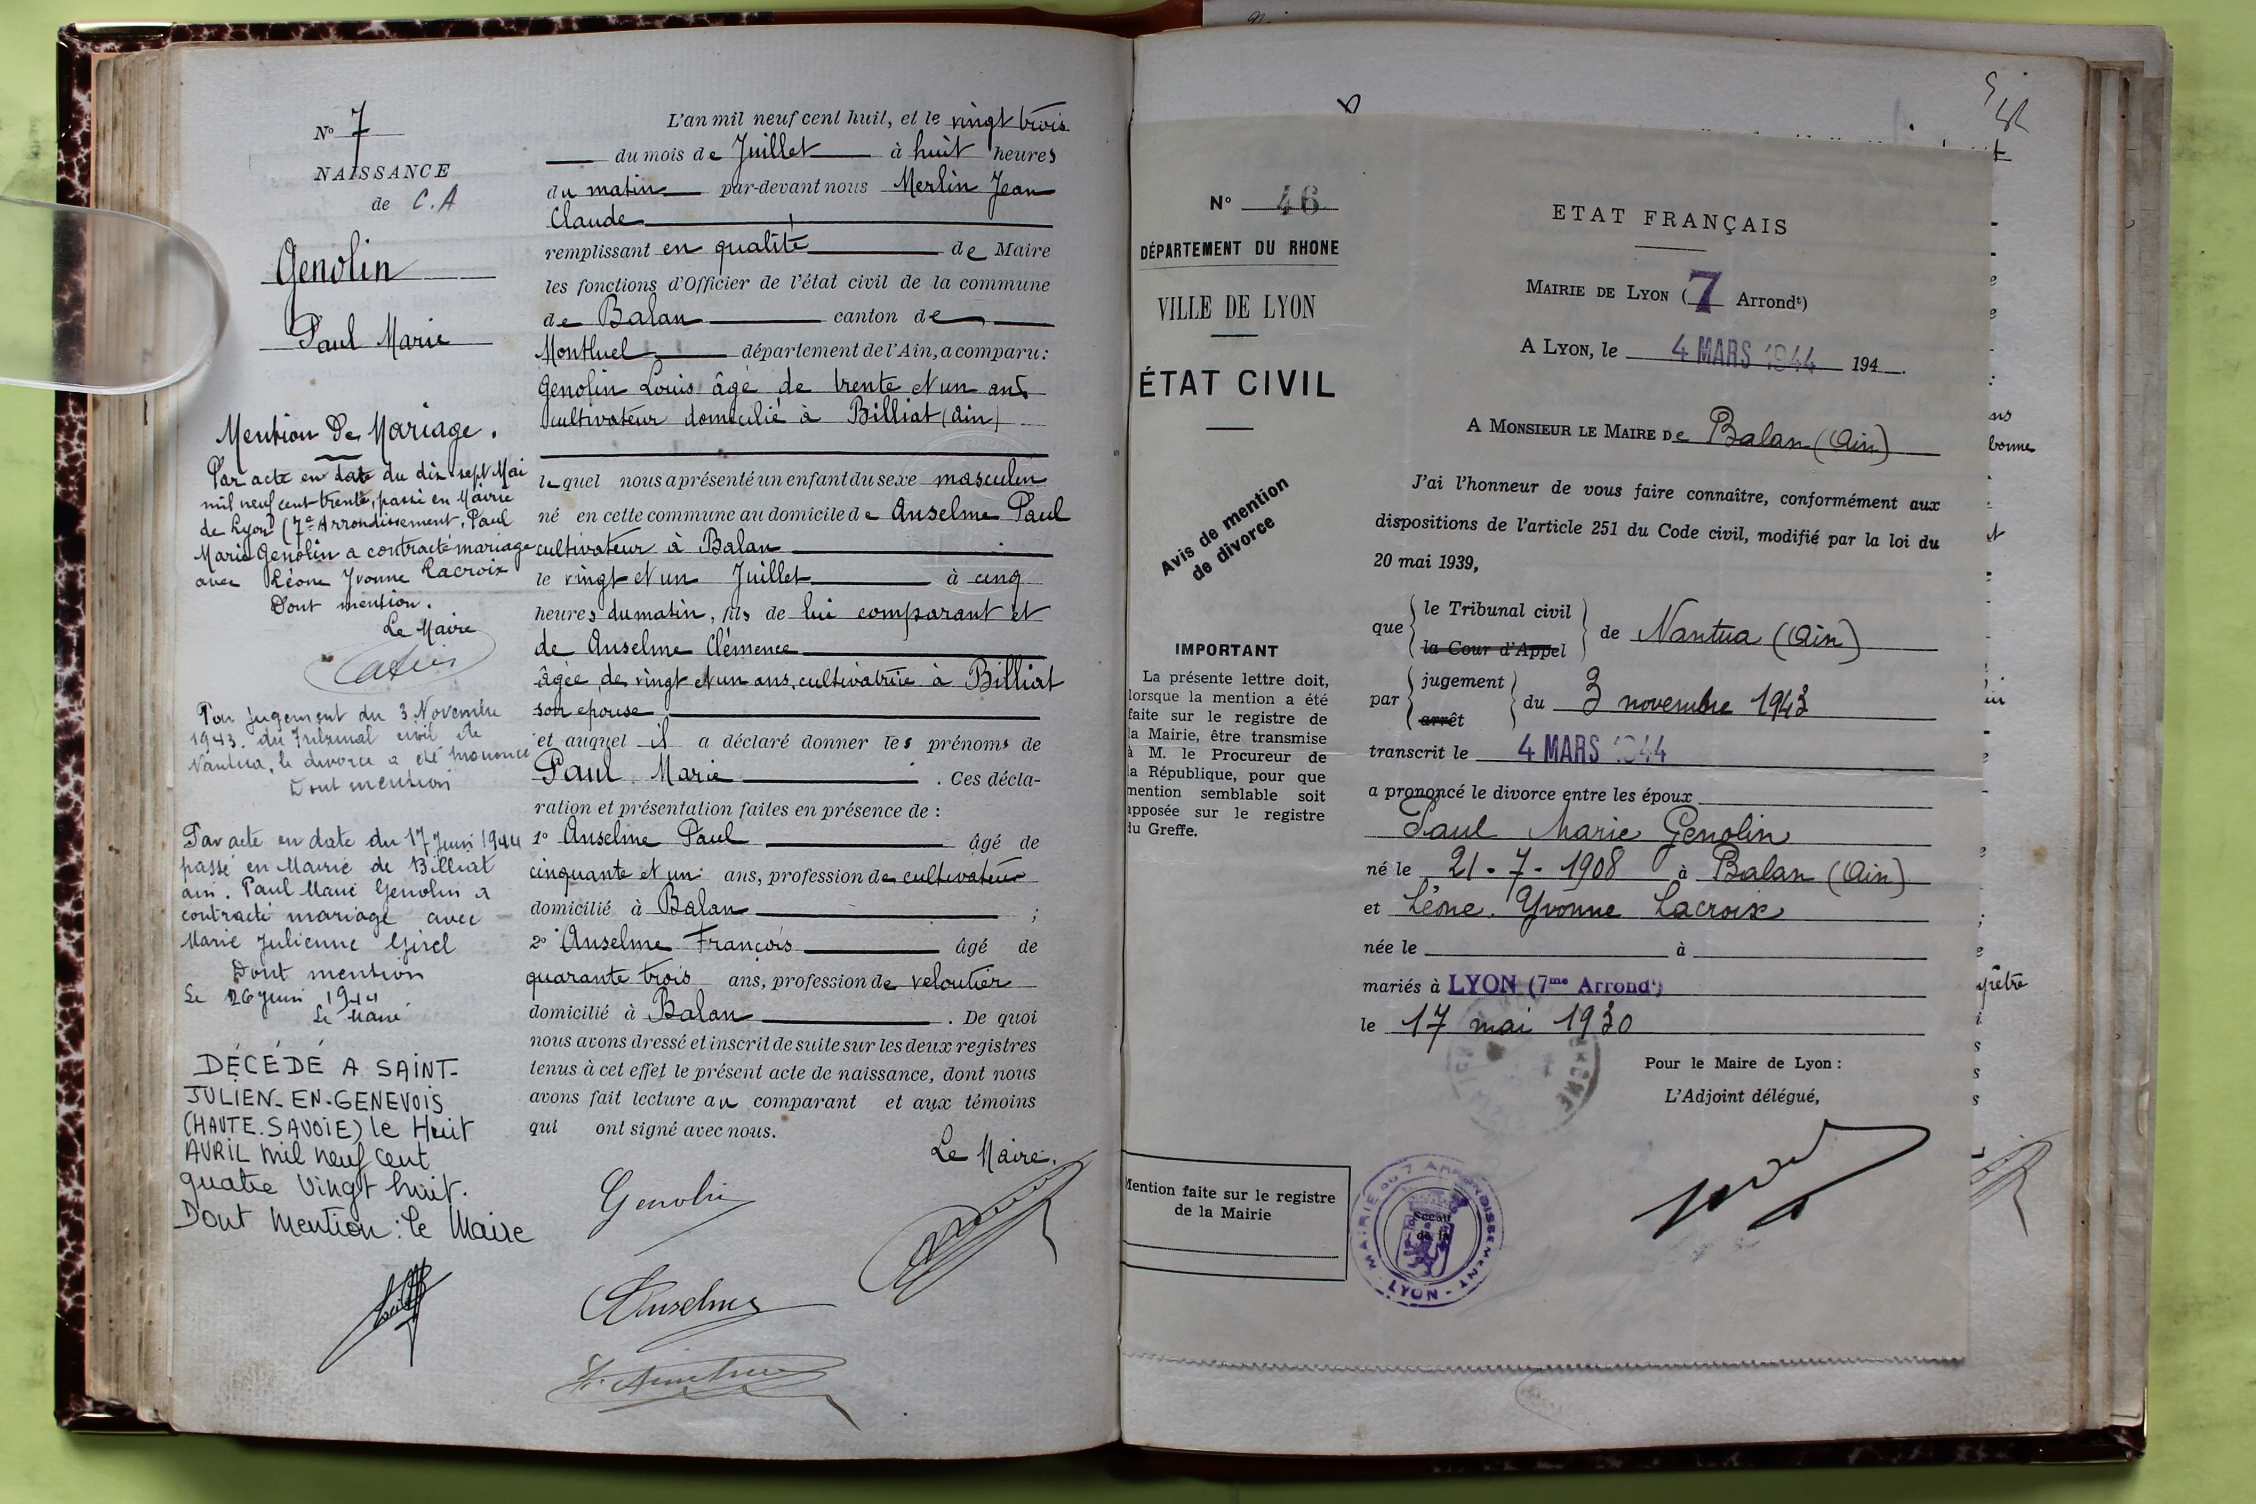 N° 7
NAISSANCE
de C.A
Genolin
Paul Marie
Mention De Mariage.
Par acte en date du dix sept Mai
mil neuf cent trente, passé en Mairie
de Lyon (7e Arrondissement, Paul
Marie Genolin a contracté mariage
avec Léone Yvonne Lacroix
Dont mention.
Le Maire
Par jugement du 3 Novembre
1943. du Tribunal civil de
Nantua, le divorce a été prononcé
Dont mention
Par acte en date du 17 Juin 1944
passé en Mairie de Billiat
ain. Paul Marie Genolin a
contracté mariage avec
Marie Julienne Girel
Dont mention
Le 26 Juin 1944
Le Maire
DÉCÉDÉ A SAINT-
JULIEN-EN-GENEVOIS
(HAUTE.SAVOIE) le Huit
AVRIL mil neuf cent
quatre vingt huit.
Dont Mention: le Maire
L'an mil neuf cent huit, et le vingt trois
du mois de Juillet à huit heures
du matin par-devant nous Merlin Jean
Claude
remplissant en qualité de Maire
les fonctions d'Officier de l'état civil de la commune
de Balan canton de
Montluel département de l'Ain, a comparu:
Genolin Louis âgé de trente et un ans
cultivateur domicilié à Billiat (Ain)
lequel nous a présenté un enfant du sexe masculin
né en cette commune au domicile de Anselme Paul
cultivateur à Balan
le vingt et un Juillet à cinq
heures du matin, fils de lui comparant et
de Anselme Clémence
âgée de vingt et un ans, cultivatrice à Billiat
son epouse
et auquel il a déclaré donner les prénoms de
Paul Marie . Ces décla-
ration et présentation faites en présence de :
1° Anselme Paul âgé de
cinquante et un ans, profession de cultivateur
domicilié à Balan ;
2° Anselme François âgé de
quarante trois ans, profession de veloutier
domicilié à Balan . De quoi
nous avons dressé et inscrit de suite sur les deux registres
tenus à cet effet le présent acte de naissance, dont nous
avons fait lecture au comparant et aux témoins
qui ont signé avec nous.
Le Maire.
Genolin
Anselme
N° 46
DÉPARTEMENT DU RHONE
VILLE DE LYON
ÉTAT CIVIL
Avis de mention
de divorce
IMPORTANT
La présente lettre doit,
lorsque la mention a été
faite sur le registre de
la Mairie, être transmise
à M. le Procureur de
la République, pour que
mention semblable soit
apposée sur le registre
du Greffe.
Mention faite sur le registre
de la Mairie
ETAT FRANÇAIS
MAIRIE DE LYON (7 Arrondt)
A LYON, le 4 MARS 1944 194 .
A MONSIEUR LE MAIRE De Balan (Ain)
J'ai l'honneur de vous faire connaître, conformément aux
dispositions de l'article 251 du Code civil, modifié par la loi du
20 mai 1939,
que le Tribunal civil
la Cour d'Appel
de Nantua (Ain)
par jugement
arrêt
du 3 novembre 1943
transcrit le 4 MARS 1944
a prononcé le divorce entre les époux
Paul Marie Genolin
né le 21-7-1908 à Balan (Ain)
et Léone Yvonne Lacroix
née le à
mariés à LYON (7me Arrondt)
le 17 mai 1930
Pour le Maire de Lyon :
L'Adjoint délégué,
MAIRIE DU 7 ARRONDISSEMENT
- LYON -
Sceau
de la
bonne